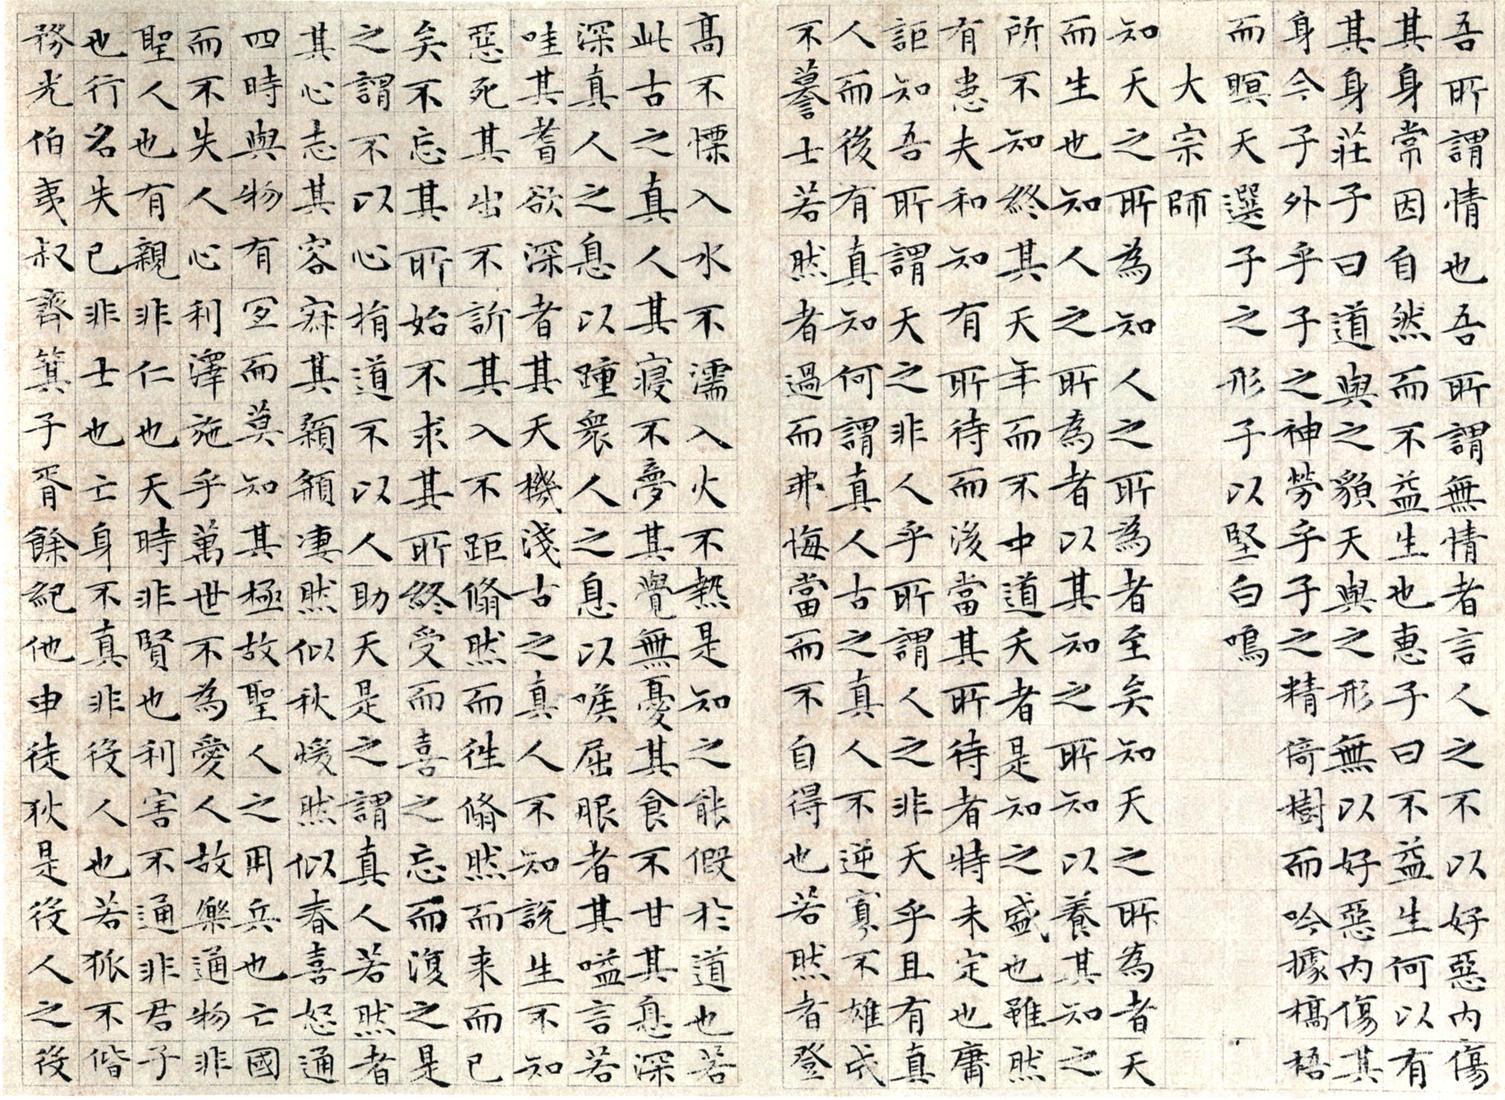 吾所謂情也吾所謂無情者言人之不以好惡内傷
其身常因自然而不益生也惠子曰不益生何以有
其身莊子曰道與之貌天與之形無以好惡内傷其
身今子外乎子之神勞乎子之精倚樹而吟據槁梧
而瞑天選子之形子以堅白鳴
大宗師
知天之所為知人之所為者至矣知天之所為者天
而生也知人之所為者以其知之所知以養其知之
所不知終其天年而不中道夭者是知之盛也雖然
有患夫和知有所待而後當其所待者特未定也庸
詎知吾所謂天之非人乎所謂人之非天乎且有真
人而後有真知何謂真人古之真人不逆寡不雄成
不謩士若然者過而弗悔當而不自得也若然者登
高不慄入水不濡入火不熱是知之能假於道也若
此古之真人其寢不夢其覺無憂其食不甘其息深
深真人之息以踵衆人之息以喉屈服者其嗌言若
哇其耆欲深者其天機淺古之真人不知說生不知
惡死其出不訢其入不距翛然而往翛然而来而已
矣不忘其所始不求其所終受而喜之忘而復之是
之謂不以心捐道不以人助天是之謂真人若然者
其心志其容寂其顙頯凄然似秋煖然似春喜怒通
四時與物有宜而莫知其極故聖人之用兵也亡國
而不失人心利澤施乎萬世不為愛人故樂通物非
聖人也有親非仁也天時非賢也利害不通非君子
也行名失己非士也亡身不真非役人也若狐不偕
務光伯夷叔齊箕子胥餘紀他申徒狄是役人之役